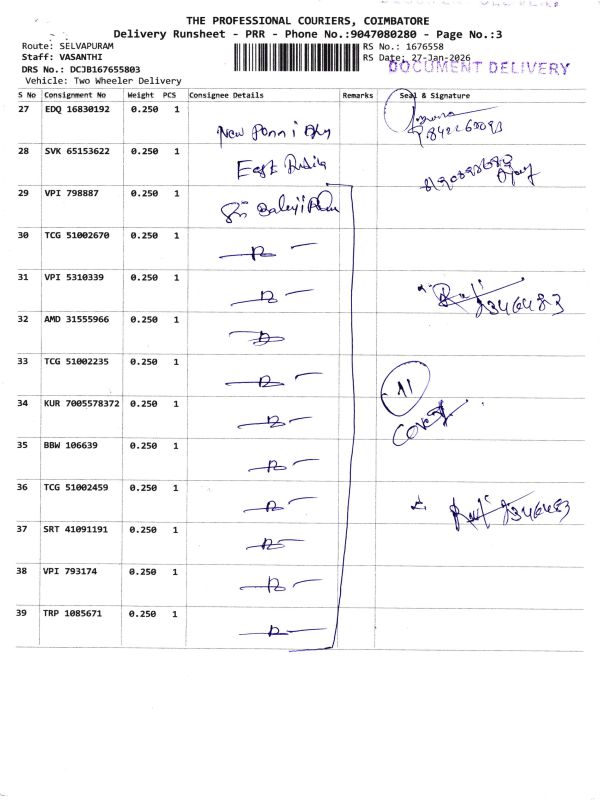 THE PROFESSIONAL COURIERS, COIMBATORE
Delivery Runsheet - PRR - Phone No.:9047080280 - Page No.:3
Route: SELVAPURAM
Staff: VASANTHI
DRS No.: DCJB167655803
Vehicle: Two Wheeler Delivery
RS No.: 1676558
RS Date: 27-Jan-2026
DOCUMENT DELIVERY
S No Consignment No Weight PCS Consignee Details Remarks Seal & Signature
27 EDQ 16830192 0.250 1 New
28 SVK 65153622 0.250 1 East
29 VPI 798887 0.250 1 Sri Balaji
30 TCG 51002670 0.250 1
31 VPI 5310339 0.250 1
32 AMD 31555966 0.250 1
33 TCG 51002235 0.250 1
34 KUR 7005578372 0.250 1 A1
Cover
35 BBW 106639 0.250 1
36 TCG 51002459 0.250 1
37 SRT 41091191 0.250 1
38 VPI 793174 0.250 1
39 TRP 1085671 0.250 1